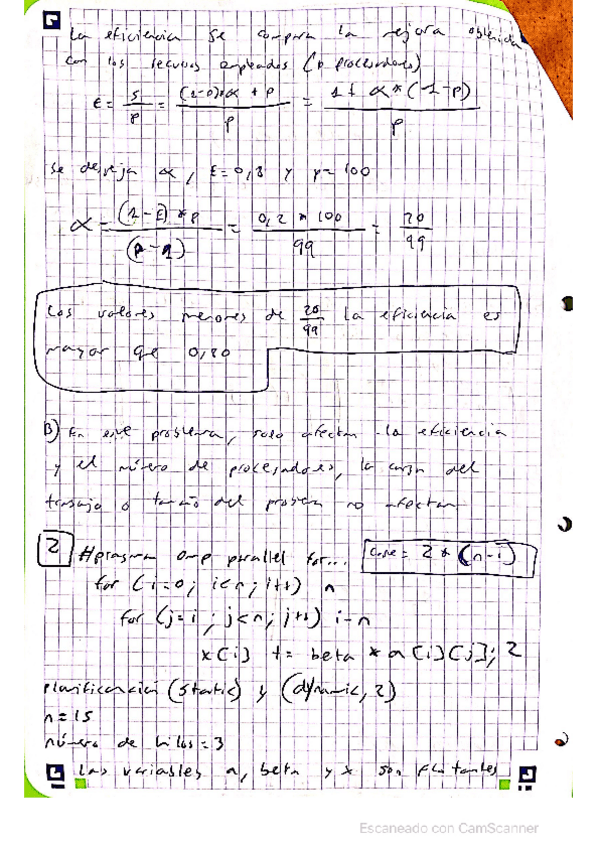 La eficiencia se compara la mejora obtenida
con los recursos empleados (p procesadores)
E = S/p = ((1-p)*α + p)/p = (1 + α*(1-p))/p
se despeja α, E=0,8 y p=100
α = ((1-E)*p)/(p-1) = (0,2 * 100)/99 = 20/99
Los valores menores de 20/99 la eficiencia es
mayor que 0,80
B) En este problema, solo afectan la eficiencia
y el número de procesadores, la carga del
trabajo o tamaño del problema no afectan
2 #pragma omp parallel for... Coste = 2 * (n-i)
for (i=0; i<n; i++) n
for (j=i; j<n; j++) i-n
x[i] += beta * a[i][j]; 2
planificación (static) y (dynamic, 2)
n=15
número de hilos = 3
Las variables a, beta y x son flotantes
Escaneado con CamScanner